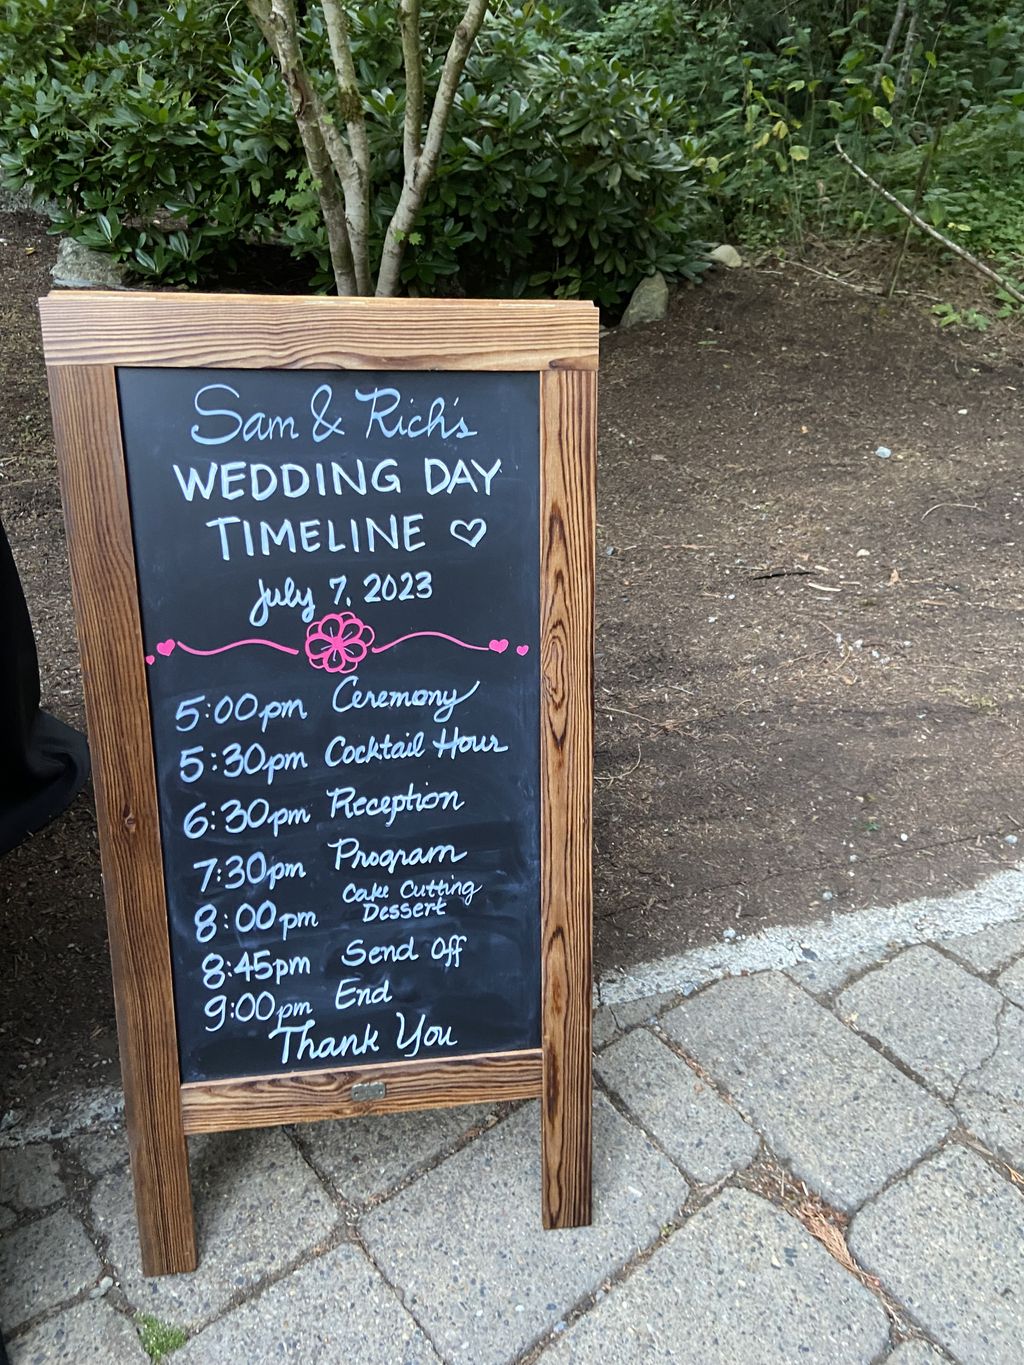 Sam & Rich's
WEDDING DAY
TIMELINE ♡
July 7, 2023
5:00pm Ceremony
5:30pm Cocktail Hour
6:30pm Reception
7:30pm Program
8:00pm Cake Cutting
Dessert
8:45pm Send Off
9:00pm End
Thank You